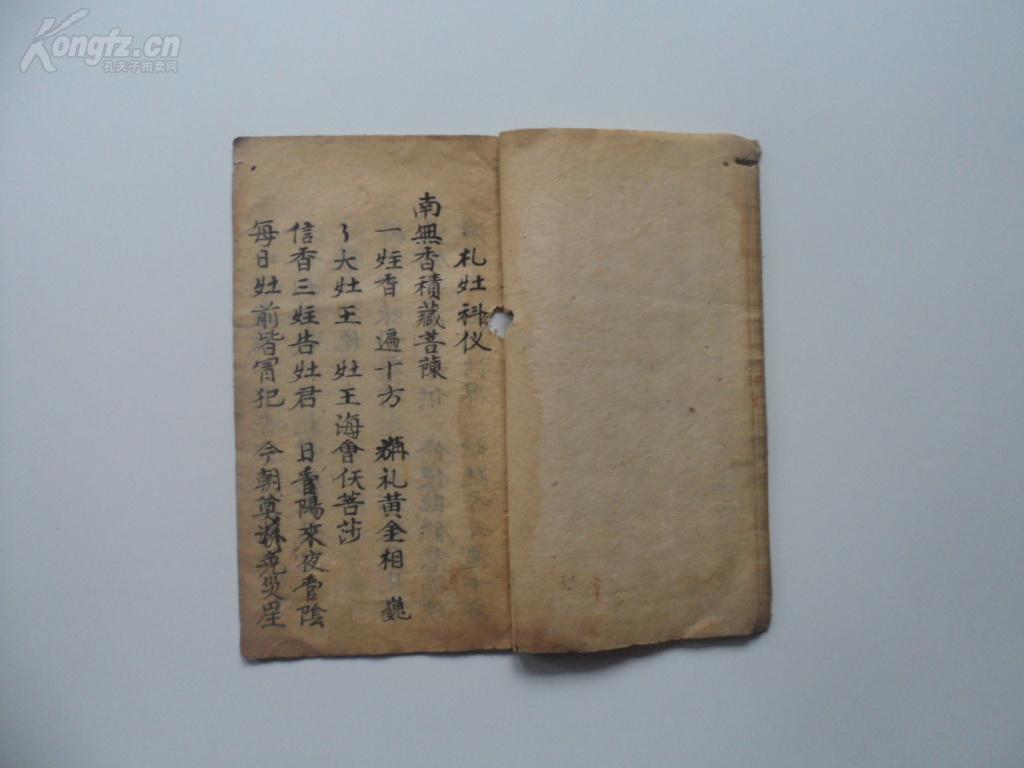 Kongfz.cn
孔夫子拍卖网
札灶科仪
南無香積藏菩
一炷香 遍十方 礼黄金相 巍
〻大灶王 灶王海會仸菩莎
信香三炷告灶君 日管陽來夜管陰
每日灶前皆冐犯 今朝奠 免災星